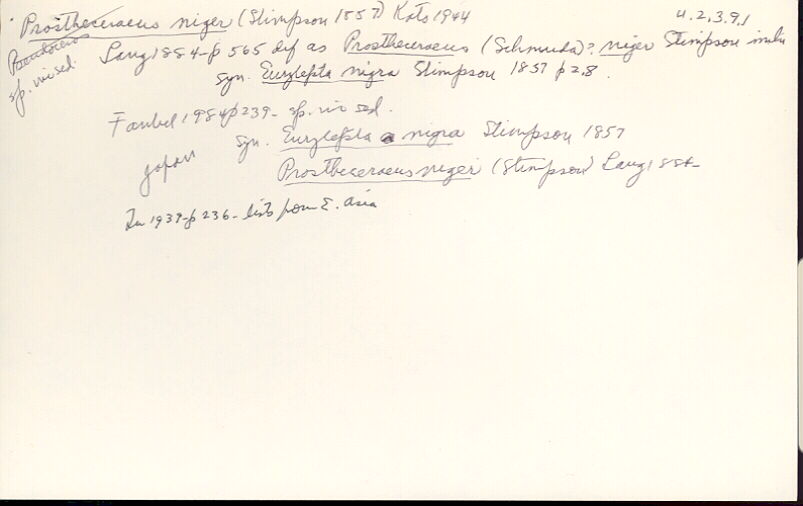 Prostheceraeus niger (Stimpson 1857) Kato 1944 4.2.3.9.1
sp. inc sed.
Lang 1884-p 565 def as Prostheceraeus (Schmarda)? niger Stimpson
syn. Eurylepta nigra Stimpson 1857 p 2,8.
Faubel 1984 p 239- sp. inc sed.
syn. Eurylepta nigra Stimpson 1857
Japan
Prostheceraeus niger (Stimpson) Lang 1884-
1937-p 236- lists from E. Asia